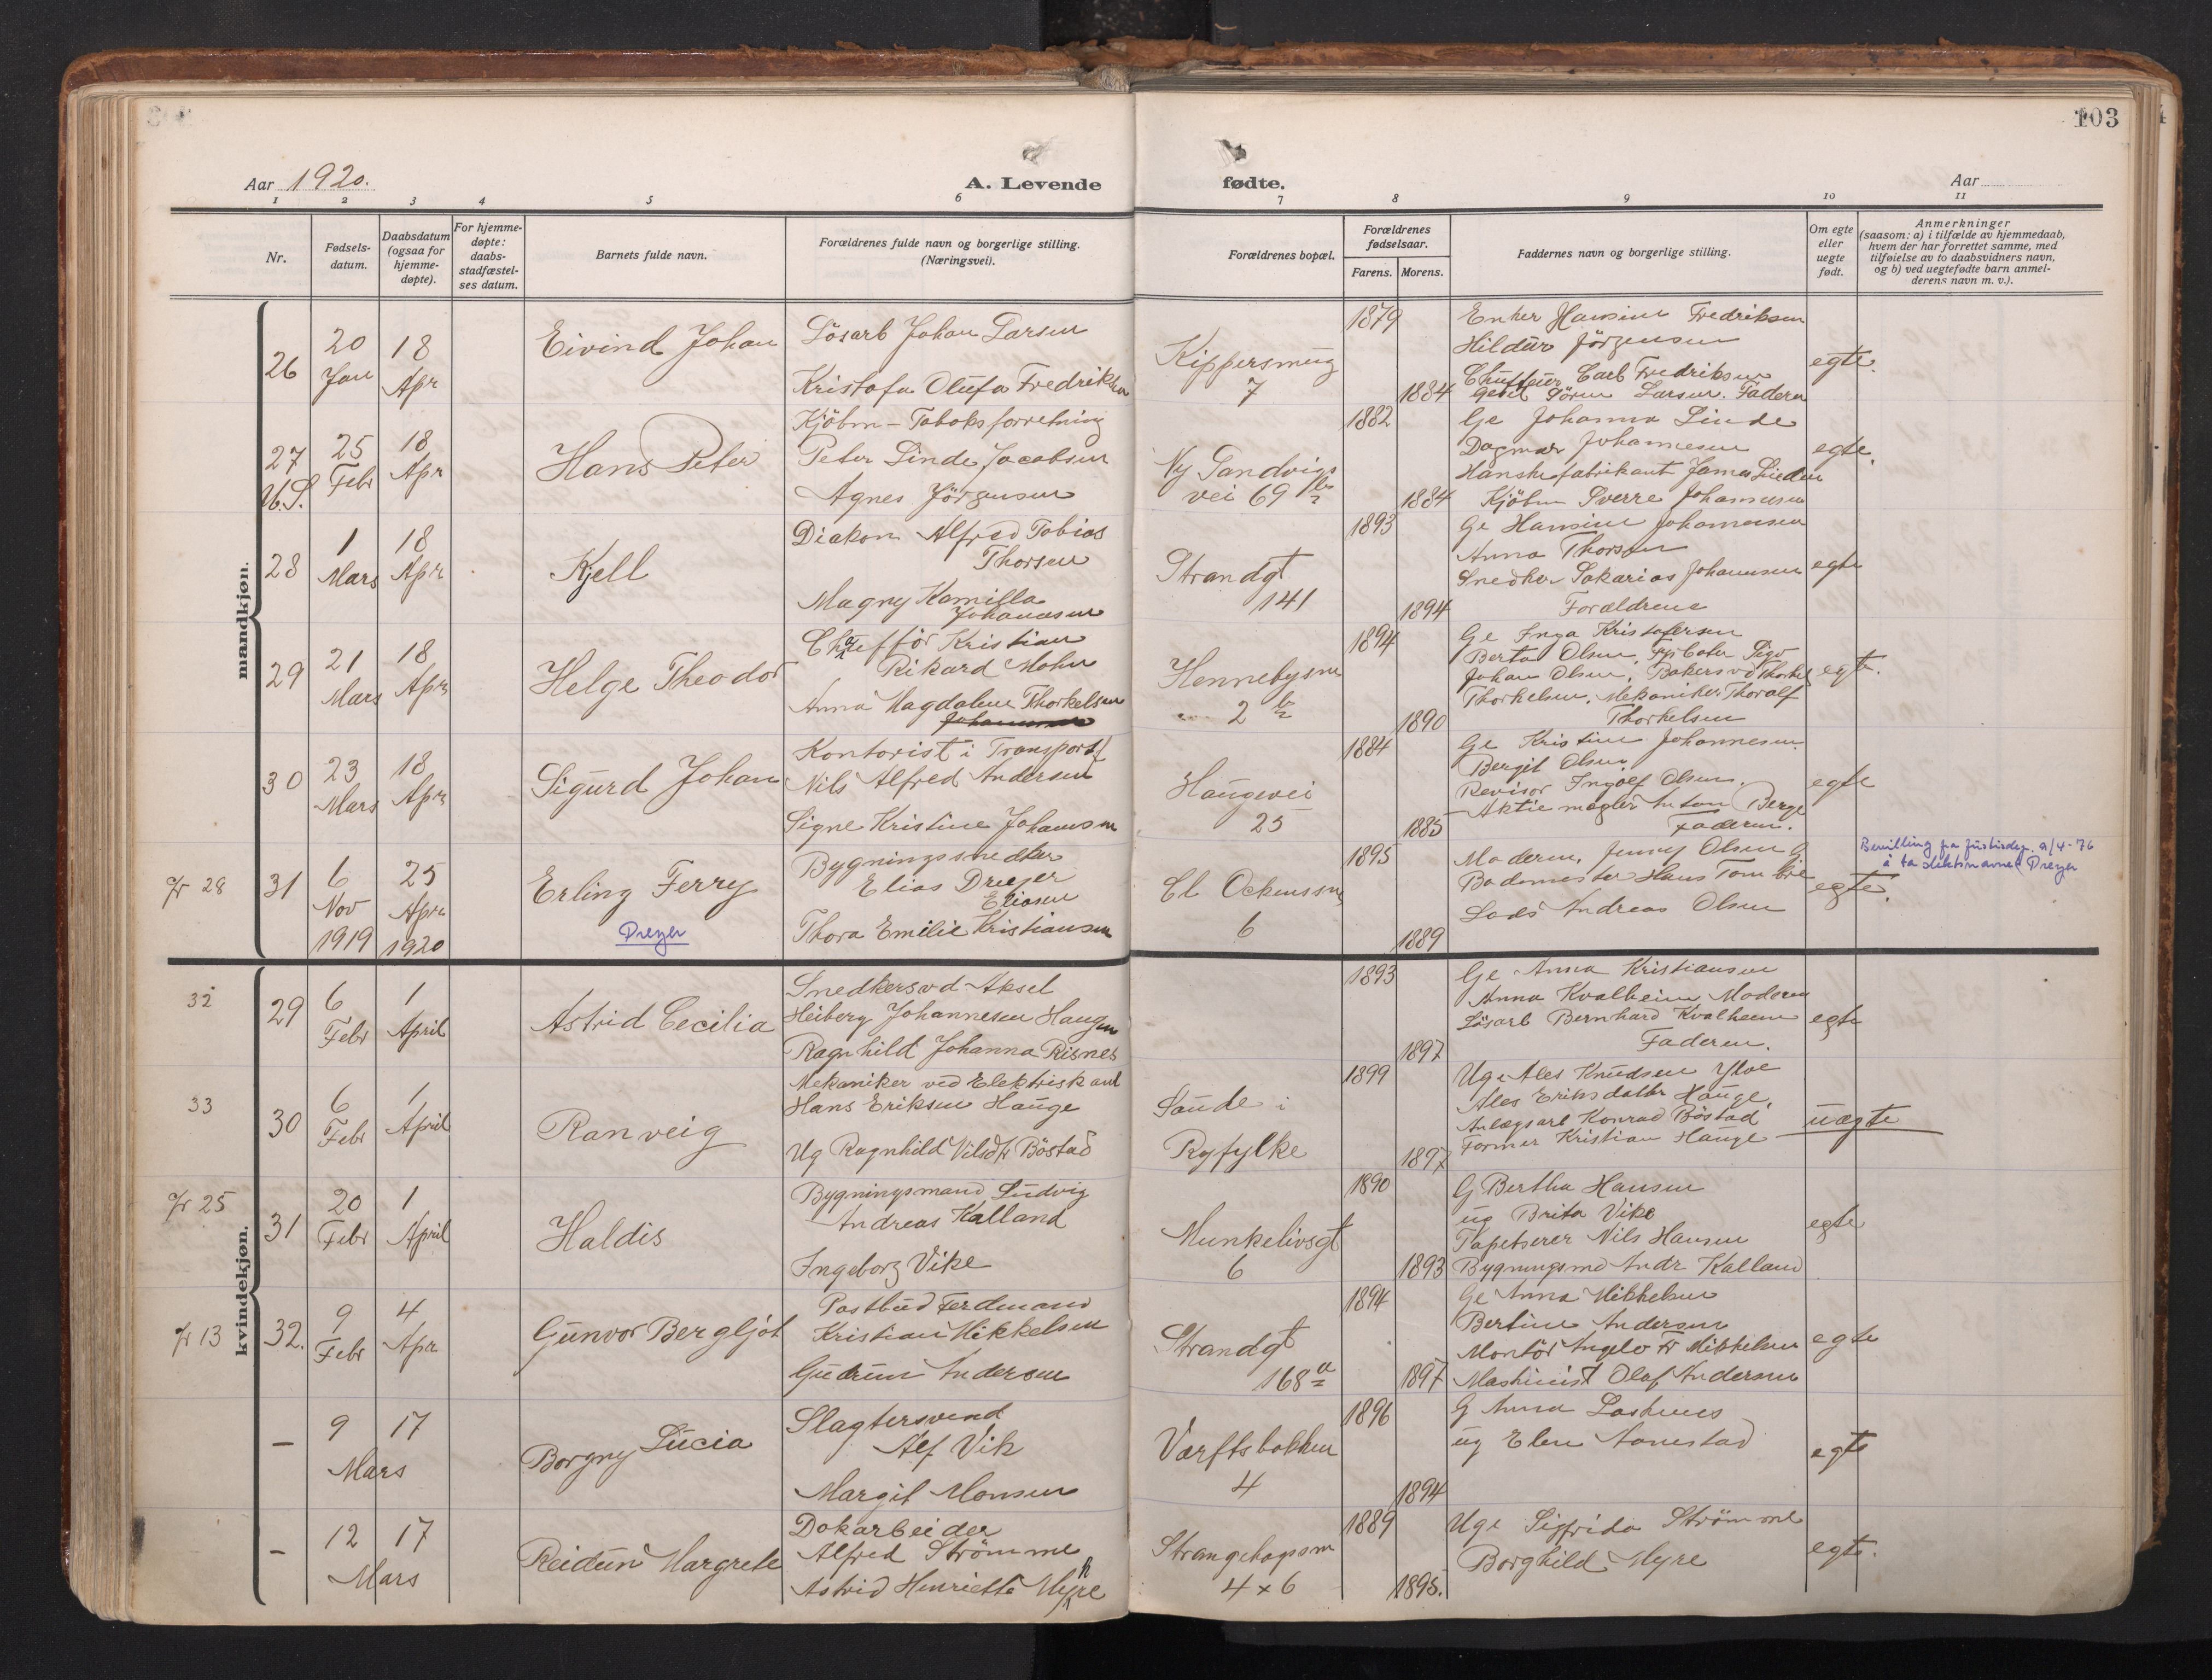 103
Aar 1920.
A. Levende
fødte.
Aar
1 2 3 4 5 6 7 8 9 10 11
Nr.
Fødsels-
datum.
Daabsdatum
(ogsaa for
hjemme-
døpte).
For hjemme-
døpte:
daabs-
stadfæstel-
ses datum.
Barnets fulde navn.
Forældrenes fulde navn og borgerlige stilling.
(Næringsvei).
Forældrenes bopæl.
Forældrenes
fødselsaar.
Farens. Morens.
Faddernes navn og borgerlige stilling.
Om egte
eller
uegte
født.
Anmerkninger
(saasom: a) i tilfælde av hjemmedaab,
hvem der har forrettet samme, med
tilføielse av to daabsvidners navn,
og b) ved uegtefødte barn anmel-
derens navn m. v.).
mandkjøn.
26
20
Jan
18
Apr
Eivind Johan
Lösarb Johan Larsen
Kristofa Olufa Fredriksen
Kippersmug
7
1879
1884
Enker Hansine Fredriksen
Hildur Jörgensen
Chuffeur Carl Fredriksen
Gesel Sören Larsen. Faderen
egte.
27
U.S.
25
Febr
18
Apr
Hans Peter
Kjöbm - Taboksforretning
Peter Linde Jacobsen
Agnes Jörgensen
Ny Sandvigs
vei 69 b
1882
1884
Ge Johanna Linde
Dagmar Johannesen
Hanskefabrikant James Linden
Kjöbm Sverre Johannesen
egte.
28
1
Mars
18
Apr
Kjell
Diakon Alfred Tobias
Thorsen
Magny Kamilla
Johannesen
Strandgt
141
1893
1894
Ge Hansine Johannesen
Anna Thorsen
Snedker Sakarias Johannsen
Forældrene
egte
29
21
Mars
18
Apr
Helge Theodor
Chaufför Kristian
Rikard Mohn
Anna Magdalene Thorkelsen
Hennebysm
2 b
1894
1890
Ge Inga Kristofersen
Berta Olsen,
Johan Olsen, Bakersvd Thorkel
Thorkelsen, Mekaniker Thoralf
Thorkelsen
egte.
30
23
Mars
18
Apr
Sigurd Johan
Kontorist i Transport
Nils Alfred Andersen
Signe Kristine Johansen
Haugevei
25
1884
1885
Ge Kristine Johannesen.
Bergit Olsen.
Revisor Ingolf Olsen.
Aktiemægler Anton Berge
Faderen.
egte
Fr 28
31
6
Nov
1919
25
Apr
1920
Erling Ferry
Dreyer
Bygningssnedker
Elias Dreyer
Eliasen
Thora Emilie Kristiansen
Cl Ockenssm
6
1895
1889
Moderen, Jenny Olsen
Bademester Hans Tombre
Lods Andreas Olsen
egte.
Bevilling fra Justisdep. 9/4-76
å ta slektsnavnet Dreyer
kvindekjøn.
32
29
6
Febr
1
April
Astrid Cecilia
Snedkersvd Aksel
Heiberg Johannesen Haugen
Ragnhild Johanna Risnes
1893
1897
Ge Anna Kristiansen
Anna Kvalheim Moderen
Lösarb Bernhard Kvalheim
Faderen.
egte
33
30
6
Febr
1
April
Ranveig
Mekaniker ved Elektrisk anl
Hans Eriksen Hauge
Ug Ragnhild Nilsdtr Böstad
Saude i
Ryfylke
1899
1897
Uge Ales Knudsen
Ales Eriksdatter Hauge,
Anlægsarb Konrad Böstad
Former Kristian Hauge
uægte
Fr 25
31
20
Febr
1
April
Haldis
Bygningsmand Ludvig
Andreas Kalland
Ingeborg Vike
Munkelivsgt
6
1890
1893
G Bertha Hansen
ug Brita Vike
Tapetserer Nils Hansen
Bygningsmd Andr Kalland
egte
Fr 13
32.
9
Febr
4
Apr
Gunvor Bergljot
Postbud Ferdinand
Kristian Mikkelsen
Gudrun Andersen
Strandgt
168 a
1894
1897
Ge Anna Mikkelsen
Bertine Andersen
Montör Angelo Fr Mikkelsen
Maskinist Olaf Andersen
egte
–
9
17
Mars
Borgny Lucia
Slagtersvend
Alf Vik
Margit Monsen
Værftsbakken
4
1896
1894
G Anna
ug Elen Aanestad
egte
–
12
17
Mars
Reidun Margrete
Dokarbeider
Alfred Strömme
Astrid Henriette Myhre
Strangehagsm
4 x 6
1889
1895.
Uge Sigfrida Strömme
Borghild Myre
egte.